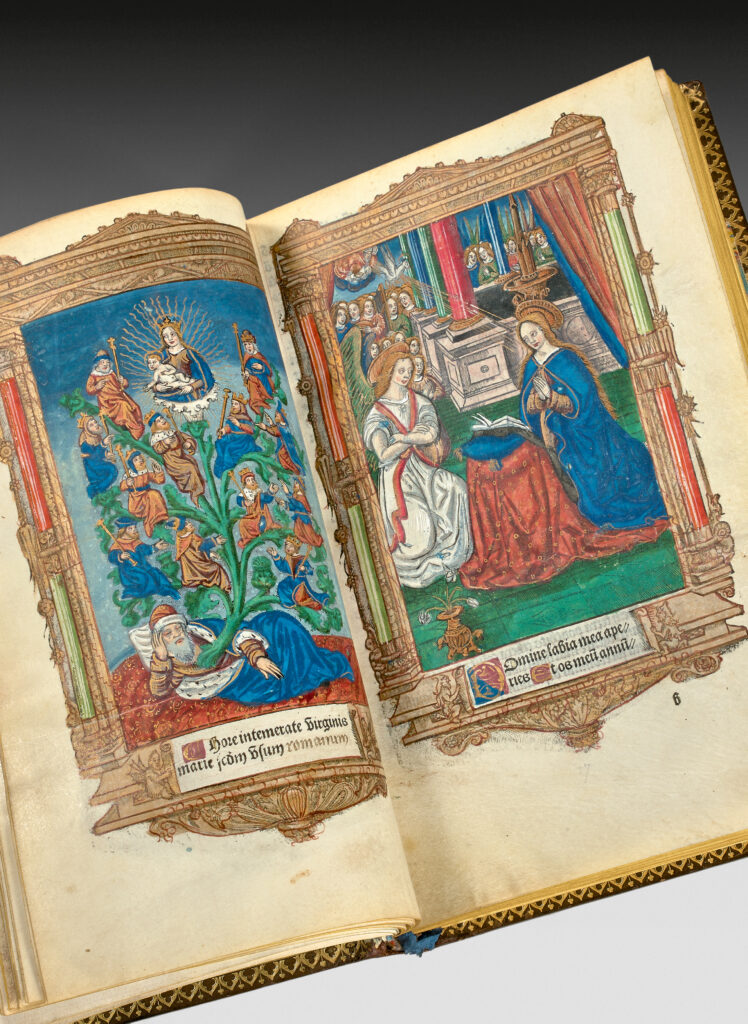 Hore intemerate Virginis
marie scḋm Vsum romanum
Domine labia mea ape⸗
ries Et os meū annū⸗
6